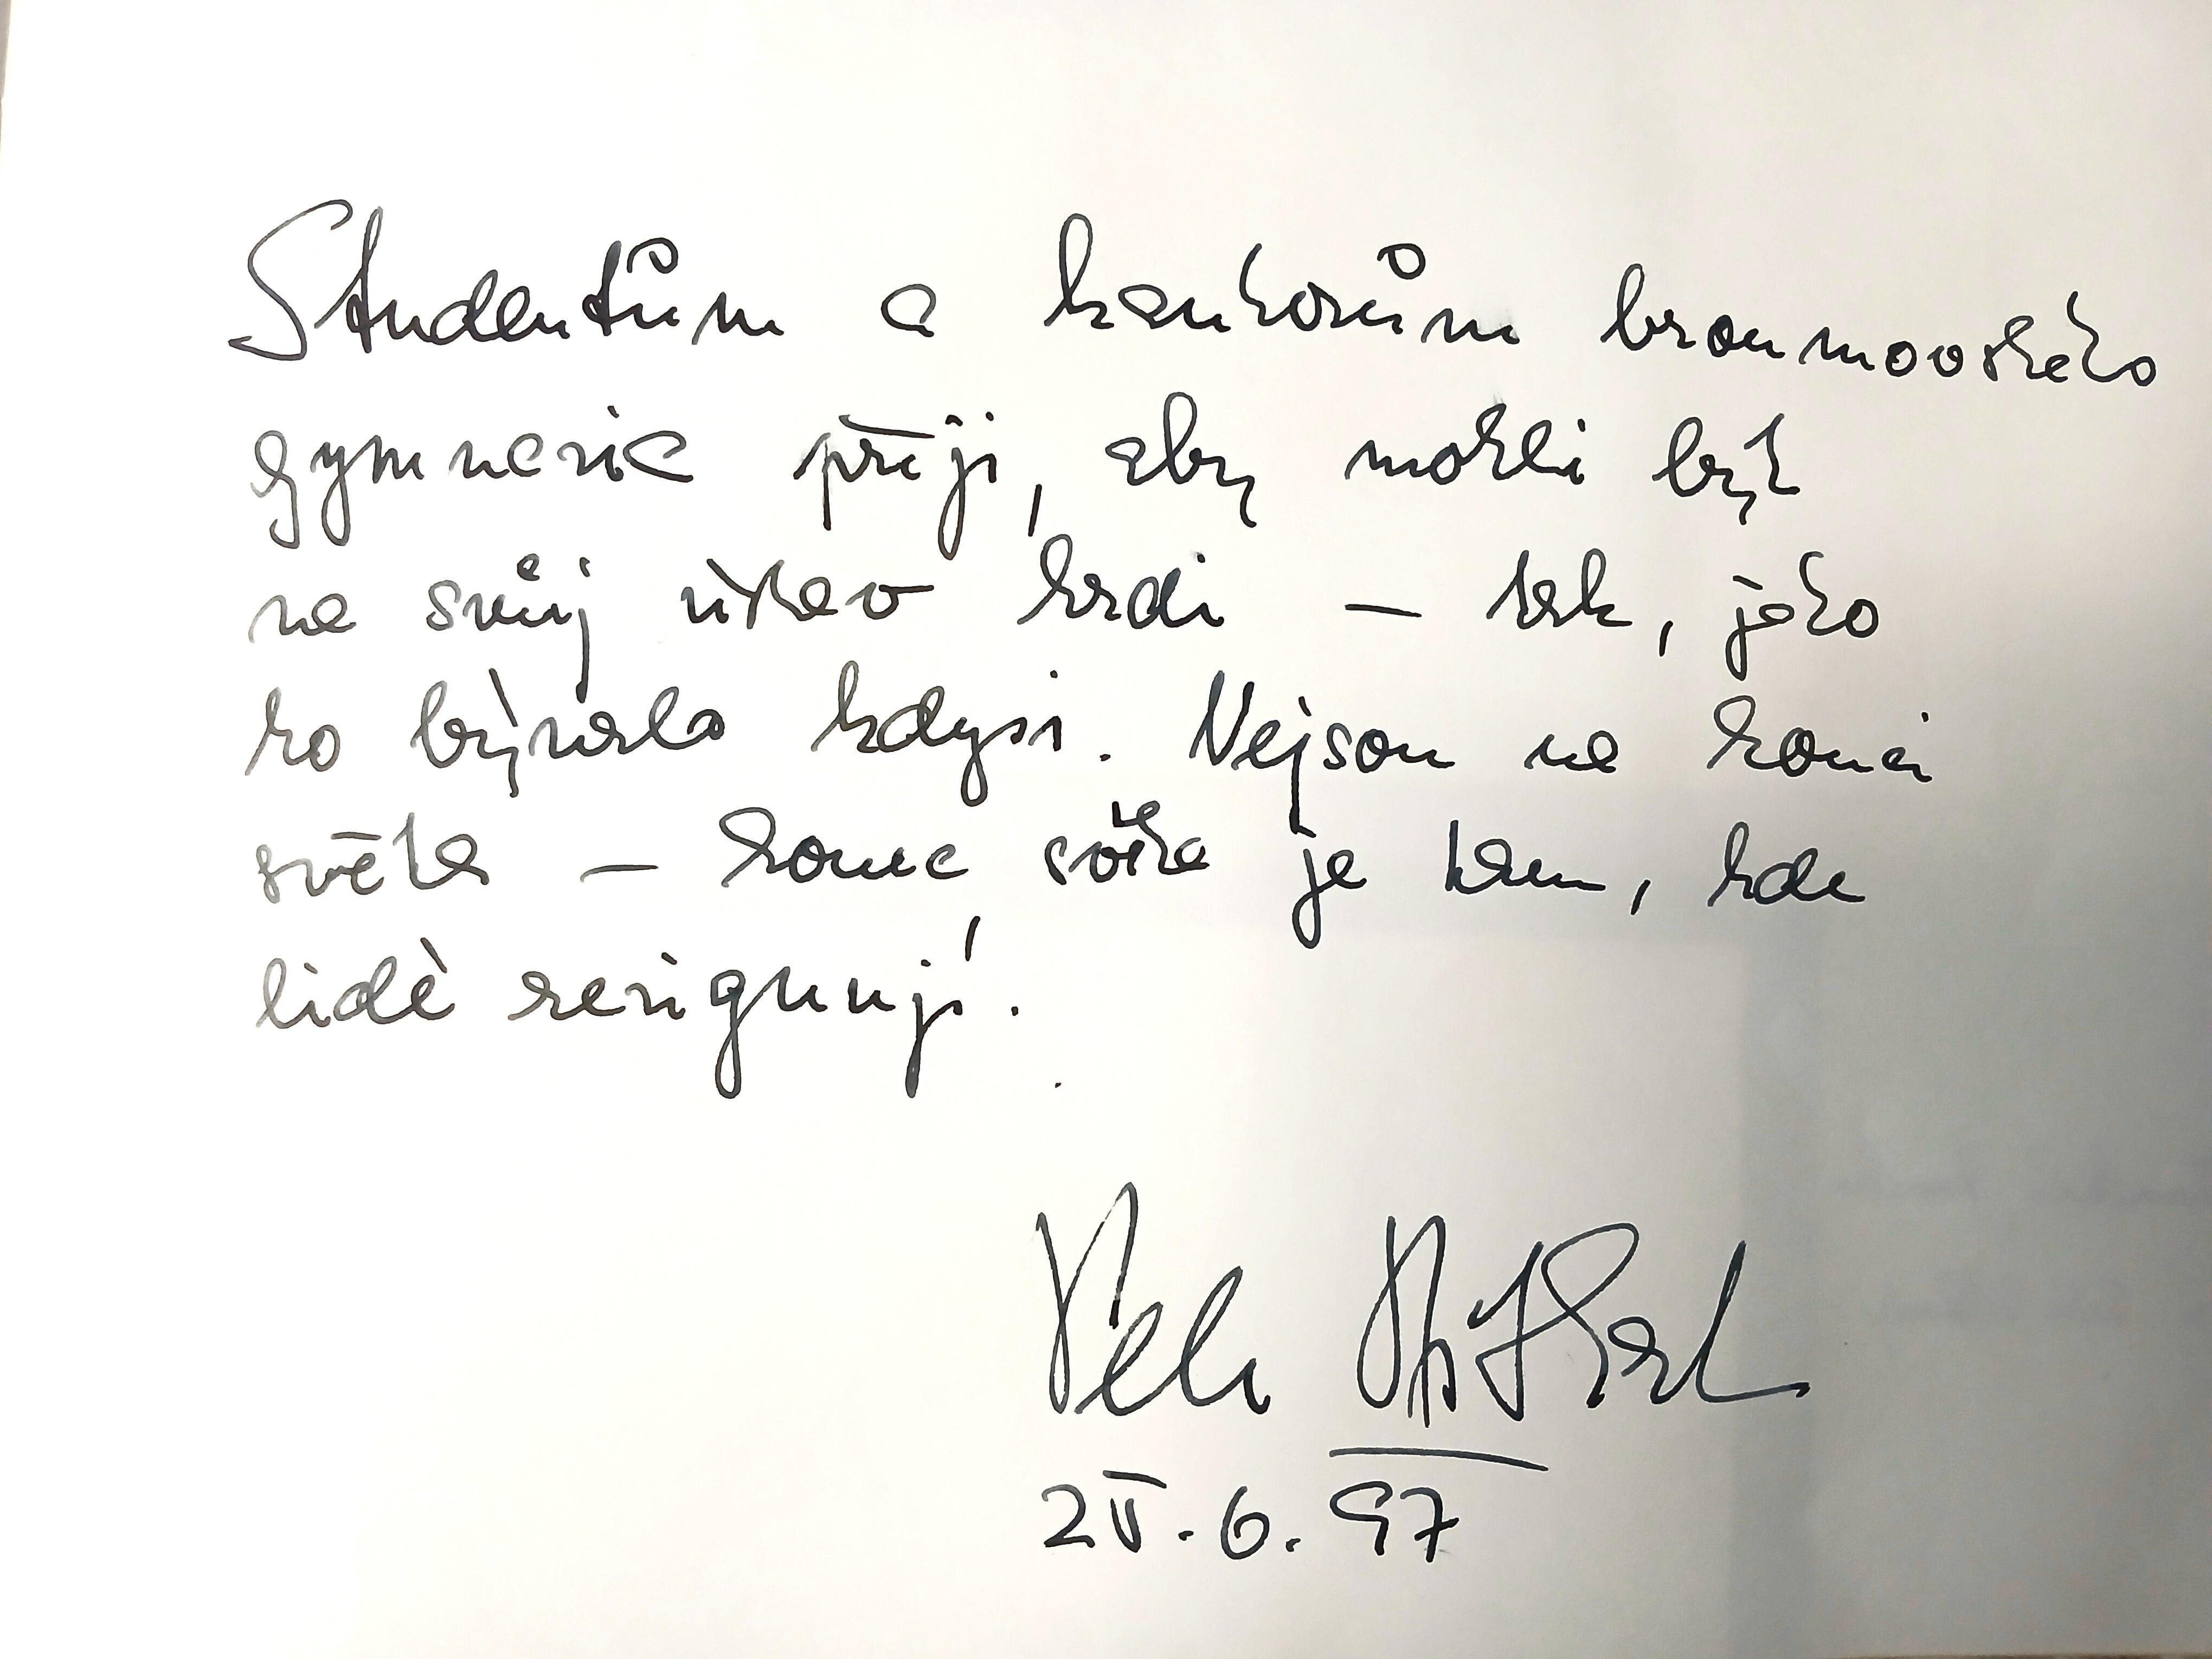 Studentům a kantorům broumovského
gymnazia přeji, aby mohli být
na svůj ústav hrdi – tak, jako
to bývalo kdysi. Nejsou na konci
světa – konec světa je tam, kde
lidé rezignují.
Petr
25.6.97